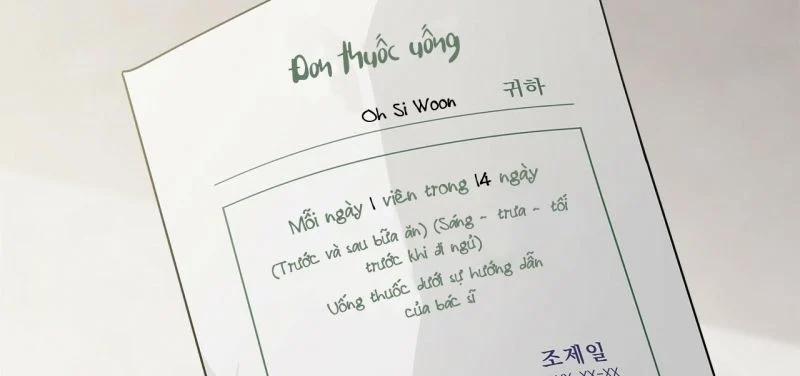 Đơn thuốc uống
Oh Si Woon 귀하
Mỗi ngày 1 viên trong 14 ngày
(Trước và sau bữa ăn) (Sáng - trưa - tối
trước khi đi ngủ)
Uống thuốc dưới sự hướng dẫn
của bác sĩ
조제일